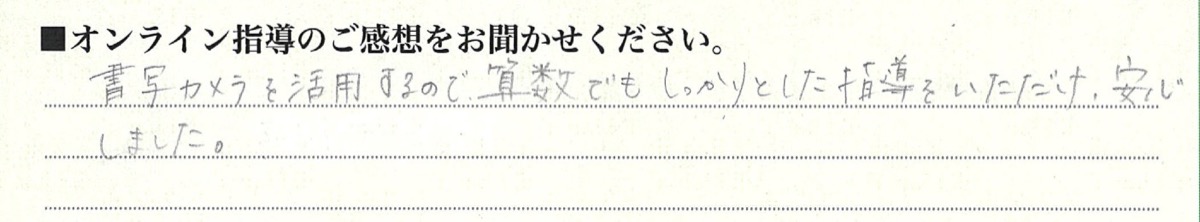 ■オンライン指導のご感想をお聞かせください。
書写カメラを活用するので、算数でもしっかりとした指導をいただけ、安心
しました。